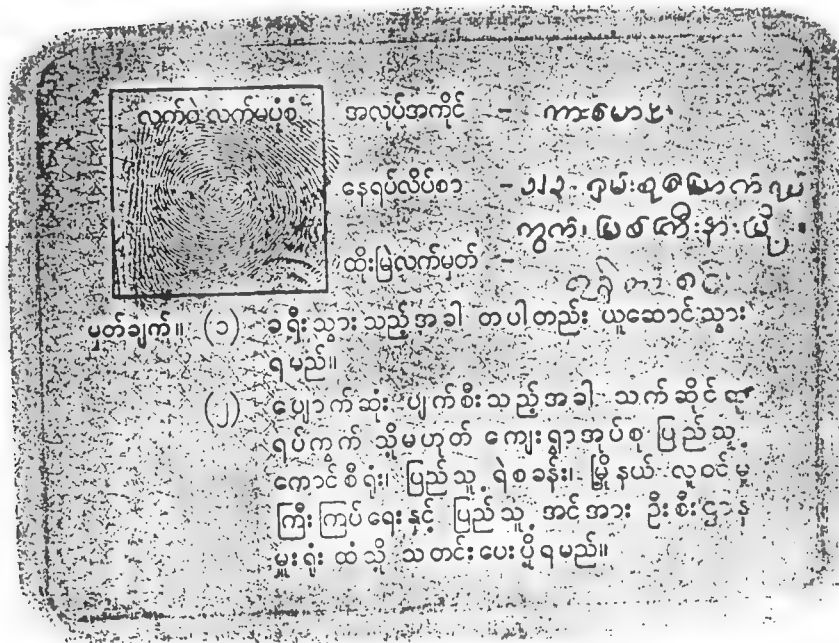 လက်ဝဲ လက်မပုံစံ
အလုပ်အကိုင် - ကားမောင်း
နေရပ်လိပ်စာ - ရှမ်းစုမြောက်ရပ်
ကွက်၊ မြစ်ကြီးနားမြို့။
ထိုးမြဲလက်မှတ် -
မှတ်ချက်။ (၁) ခရီးသွားသည့်အခါ တပါတည်း ယူဆောင်သွား
ရမည်။
(၂) ပျောက်ဆုံး ပျက်စီးသည့်အခါ သက်ဆိုင်ရာ
ရပ်ကွက် သို့မဟုတ် ကျေးရွာအုပ်စု ပြည်သူ့
ကောင်စီရုံး၊ ပြည်သူ့ရဲစခန်း၊ မြို့နယ် လူဝင်မှု
ကြီးကြပ်ရေးနှင့် ပြည်သူ့ အင်အား ဦးစီးဌာန
မှူးရုံး ထံသို့ သတင်းပေးပို့ရမည်။